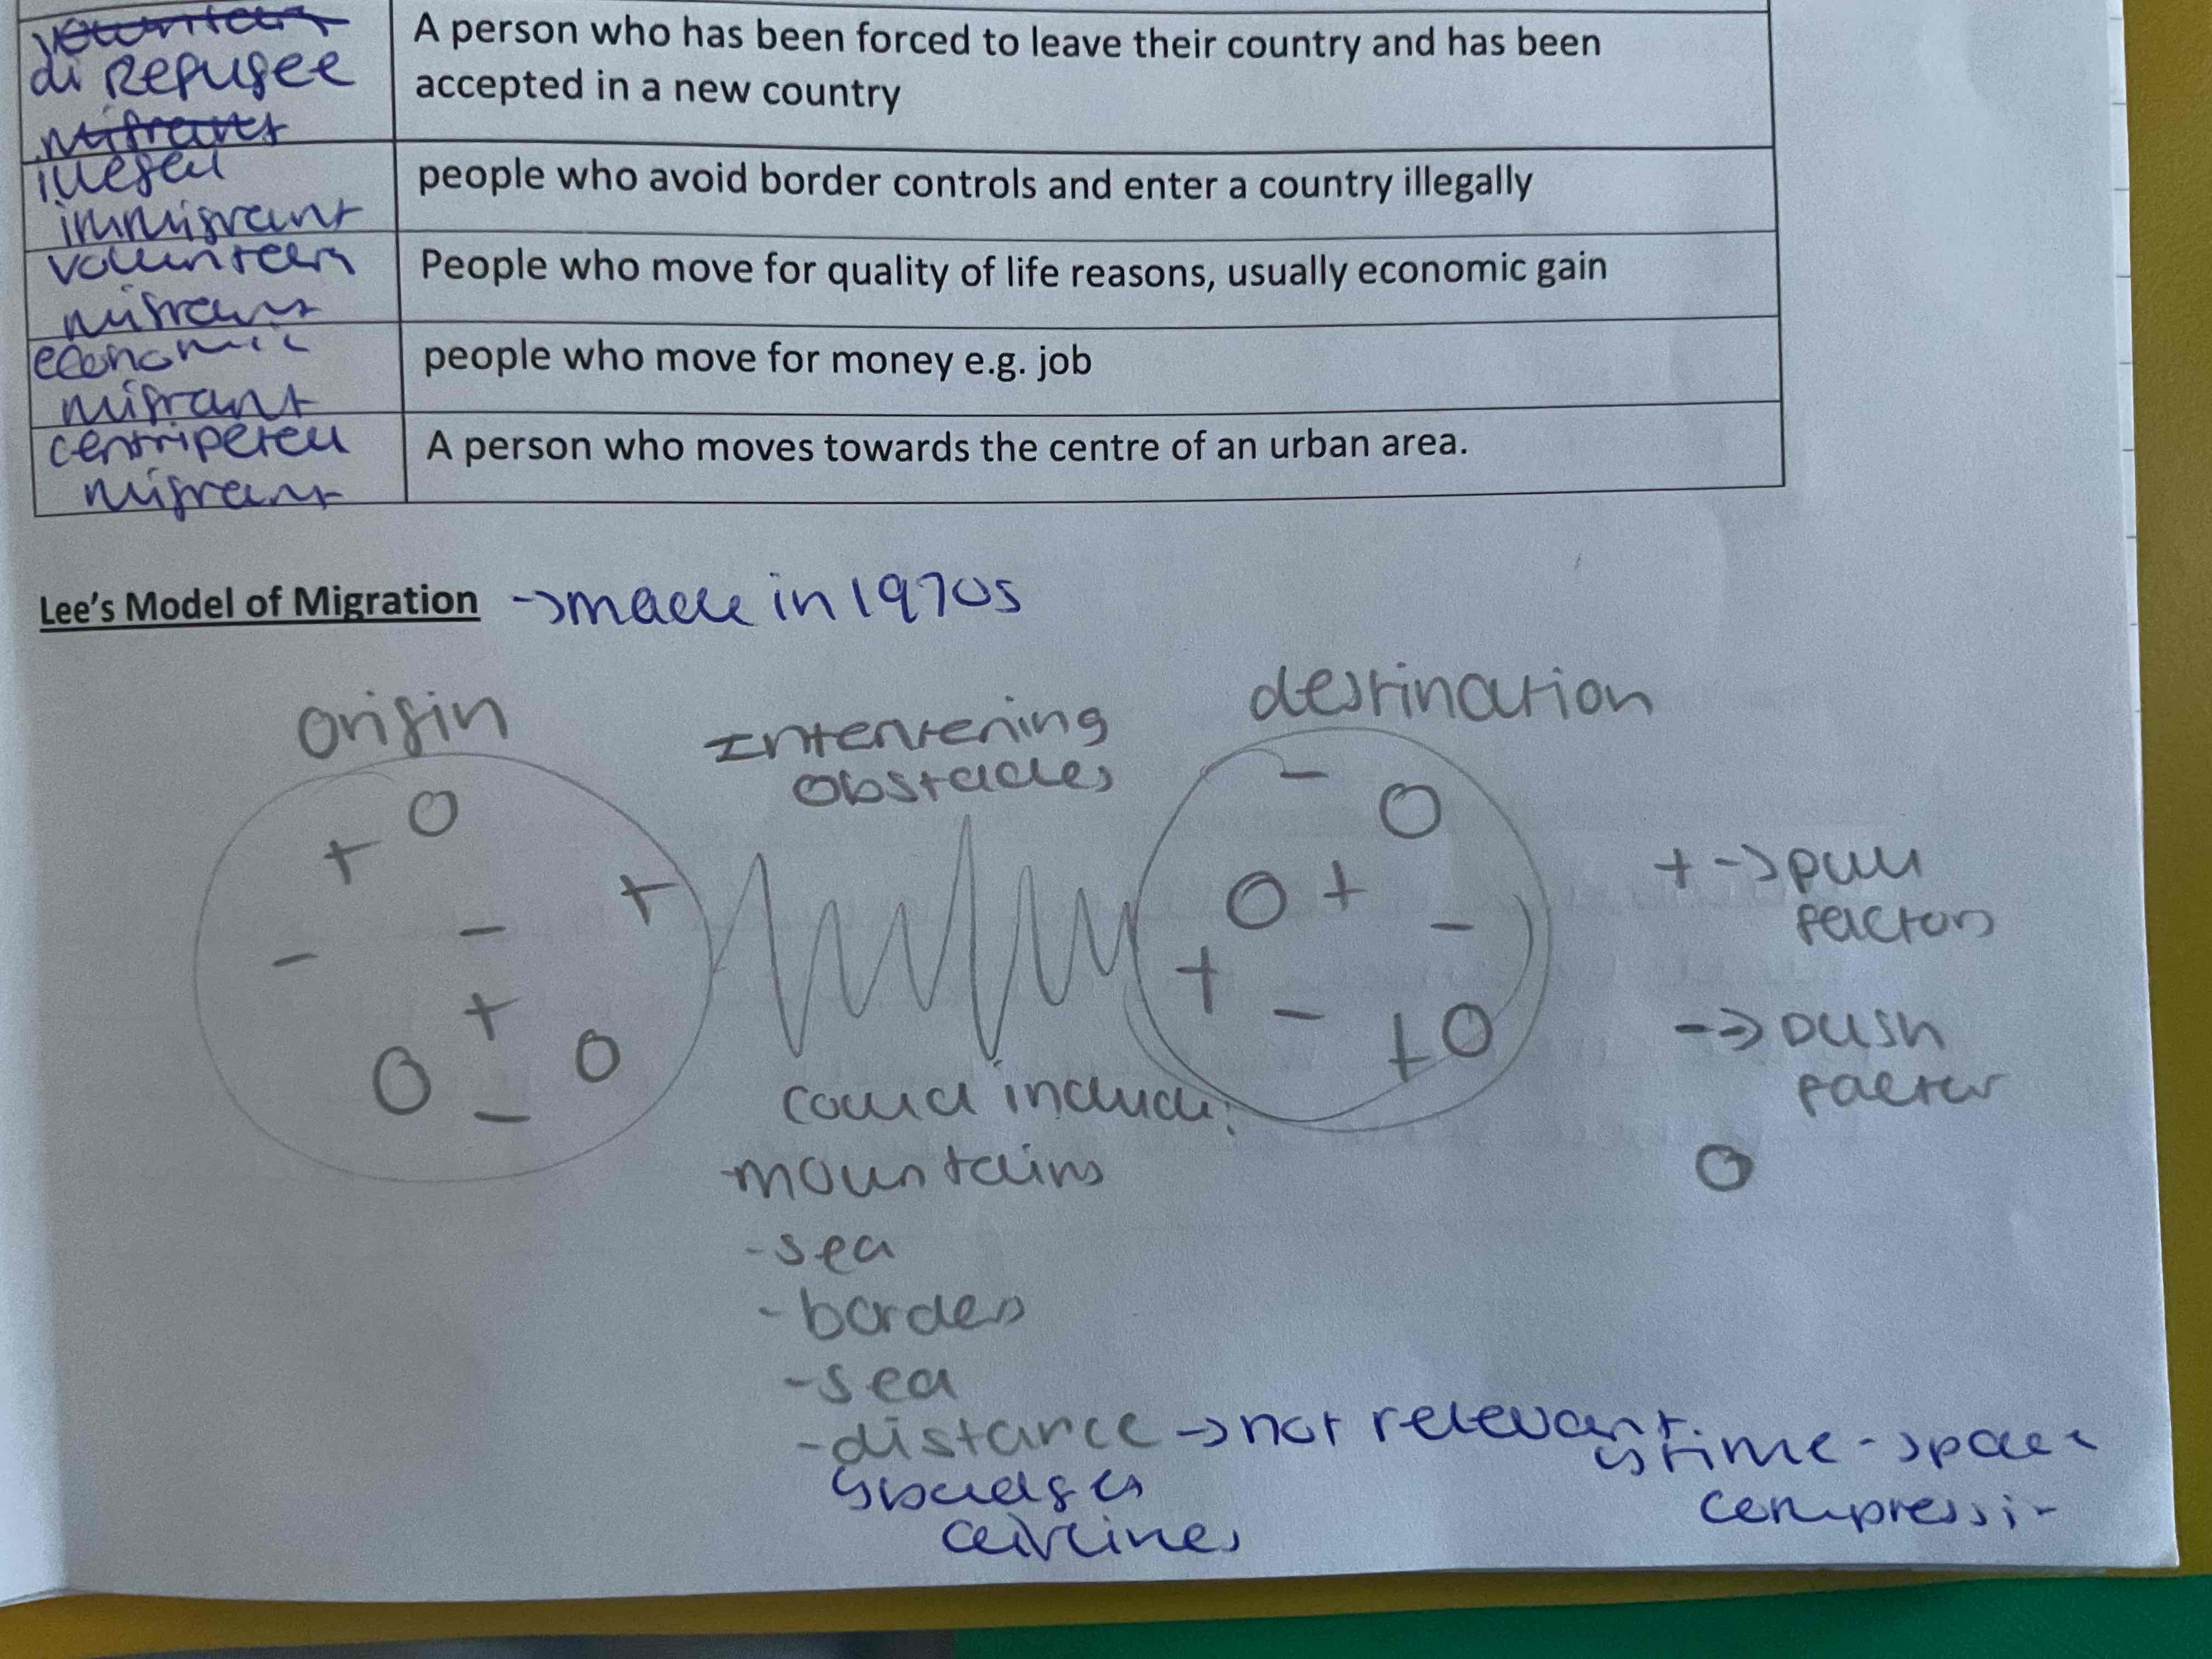 voluntary
di Refugee
migrants
A person who has been forced to leave their country and has been
accepted in a new country
illegal
immigrant
people who avoid border controls and enter a country illegally
volunteery
migrant
People who move for quality of life reasons, usually economic gain
economic
migrant
people who move for money e.g. job
centripetal
migrant
A person who moves towards the centre of an urban area.
Lee's Model of Migration → made in 1970s
origin
Intervening
obstacles
destination
+ O + - - + O O -
- O O + - + - + O
+ → pull
factors
- → push
factor
O
could include:
-mountains
-sea
-borders
-sea
-distance → not relevant
↳ time-space
compressi
↳ budget
airlines